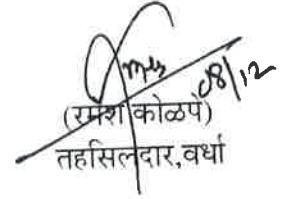 08/12
(रमेश कोळपे)
तहसिलदार,वर्धा